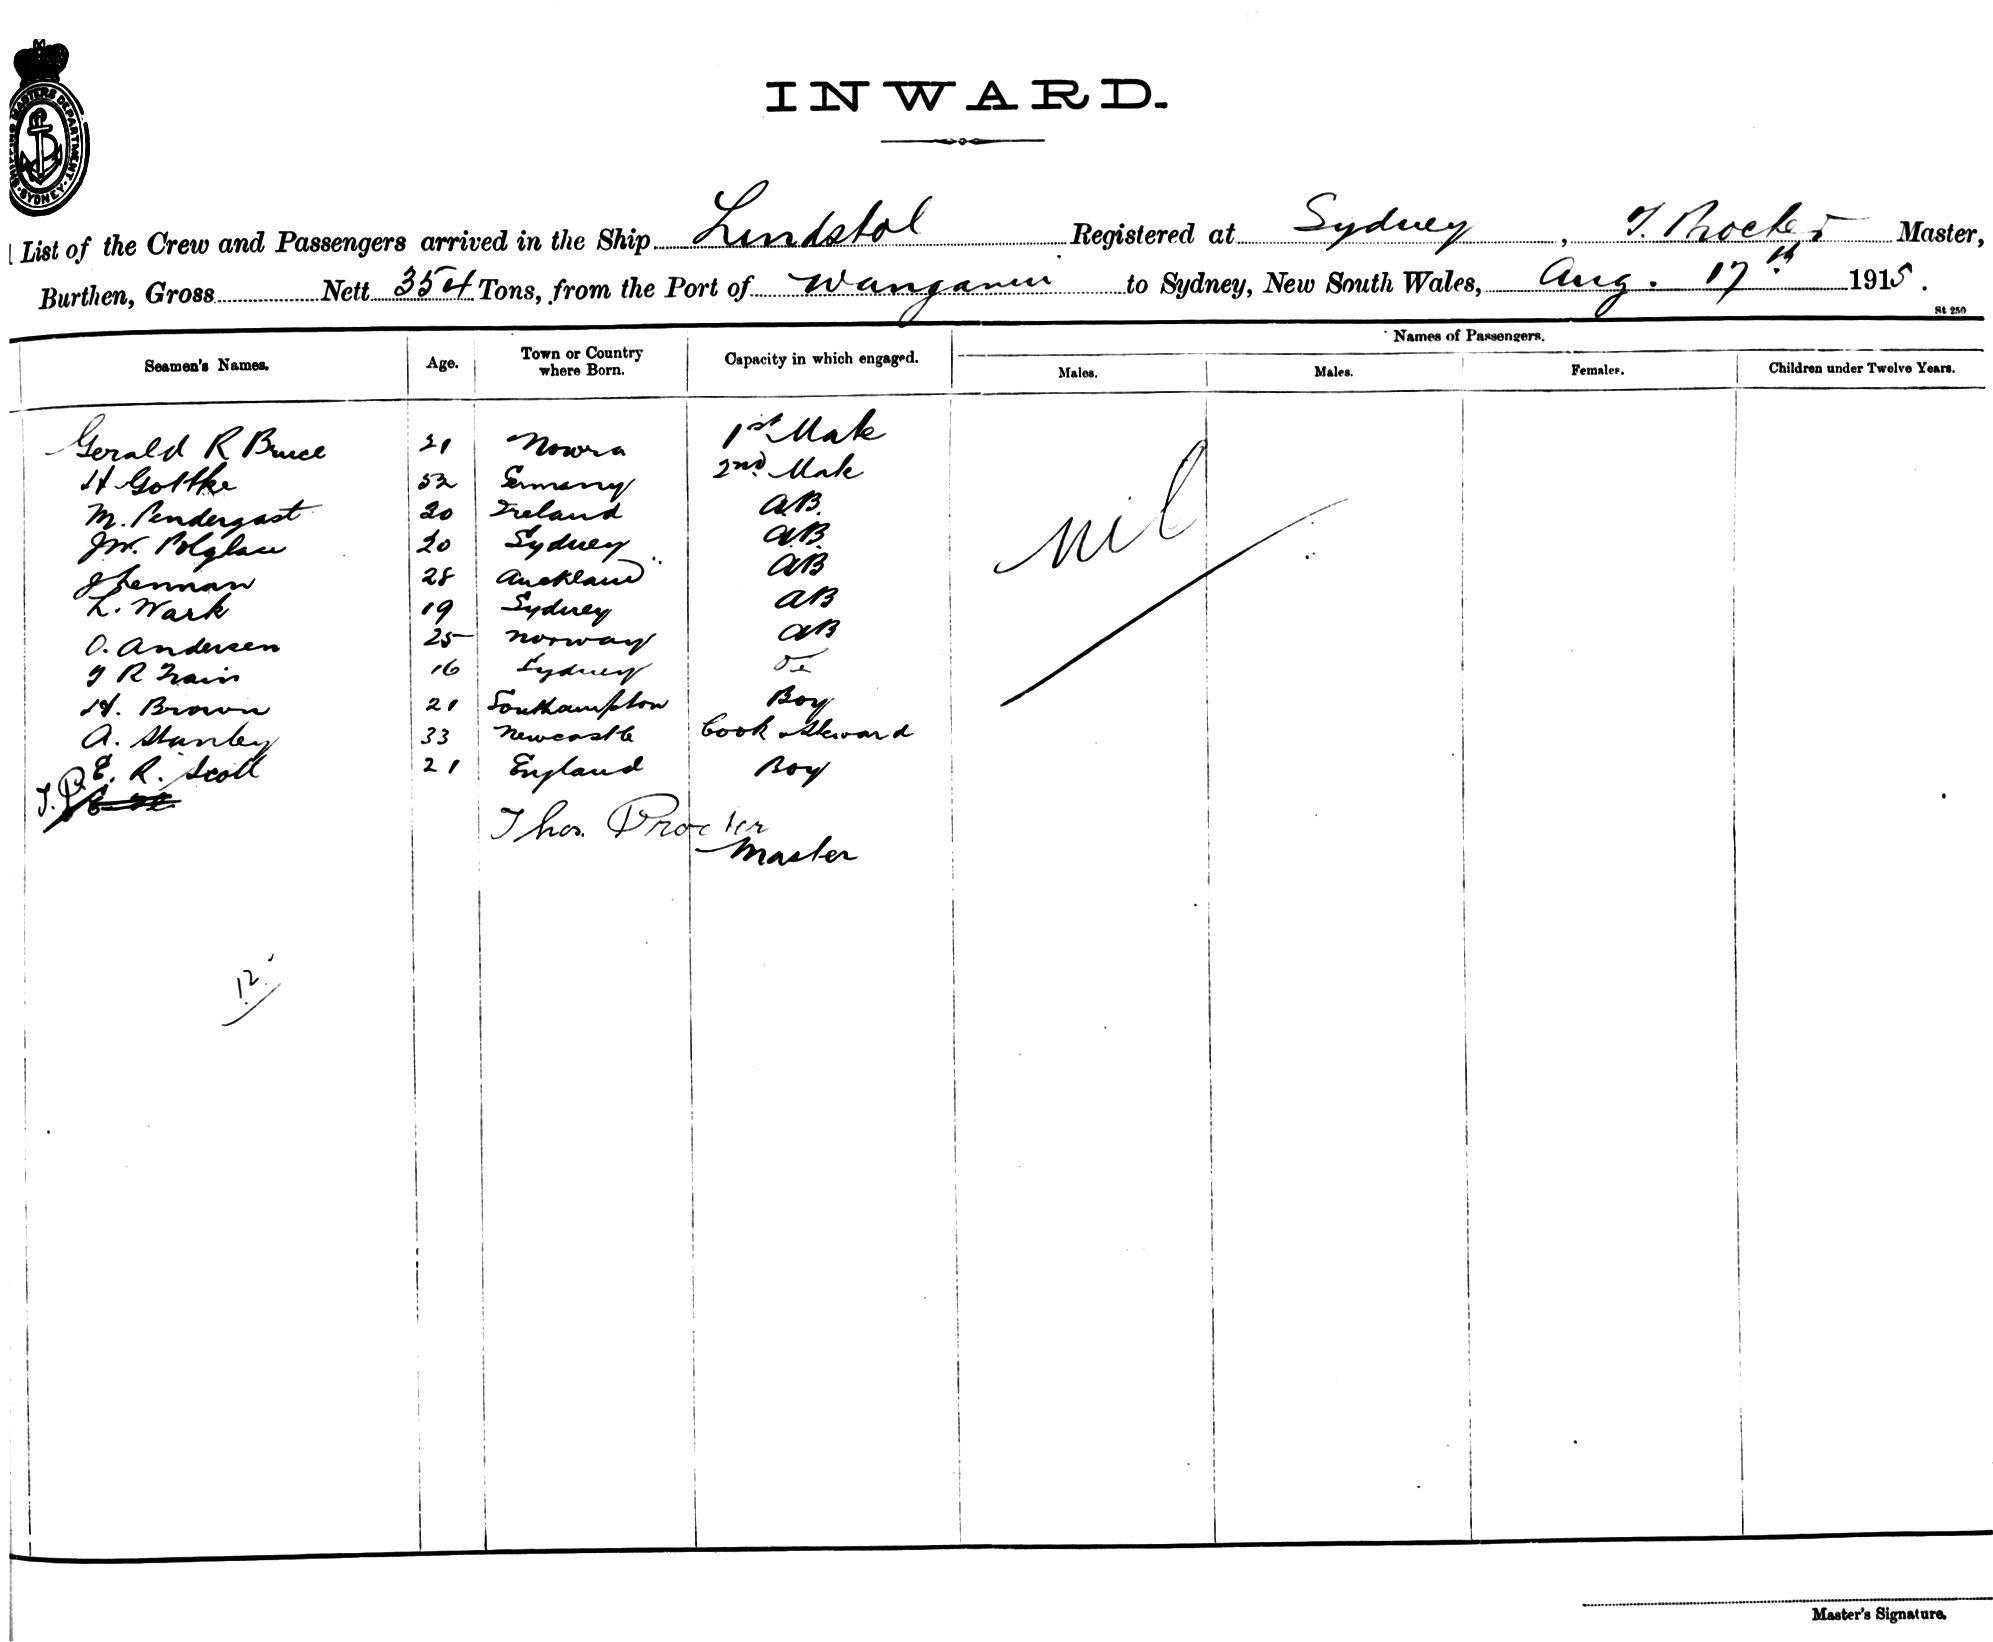 SHIPPING MASTERS DEPARTMENT · SYDNEY
INWARD.
List of the Crew and Passengers arrived in the Ship Lindstol Registered at Sydney, T. Procter Master,
Burthen, Gross Nett 354 Tons, from the Port of Wanganui to Sydney, New South Wales, Aug. 17th 1915.
St 250
Names of Passengers.
Seamen's Names. Age. Town or Country where Born. Capacity in which engaged. Males. Males. Females. Children under Twelve Years.
Gerald R Bruce 21 Nowra 1st Mate
H Gottke 52 Germany 2nd Mate
M. Pendergast 20 Ireland AB.
JW. Polglase 20 Sydney A.B.
J Lennan 28 Auckland AB
L. Wark 19 Sydney AB
O. Andersen 25 Norway AB
R Train 16 Sydney
H. Brown 21 Southampton Boy
A. Stanley 33 Newcastle Cook & Steward
E. R. Scott 21 England Boy
nil
T.P.
Thos. Procter
Master
12.
Master's Signature.